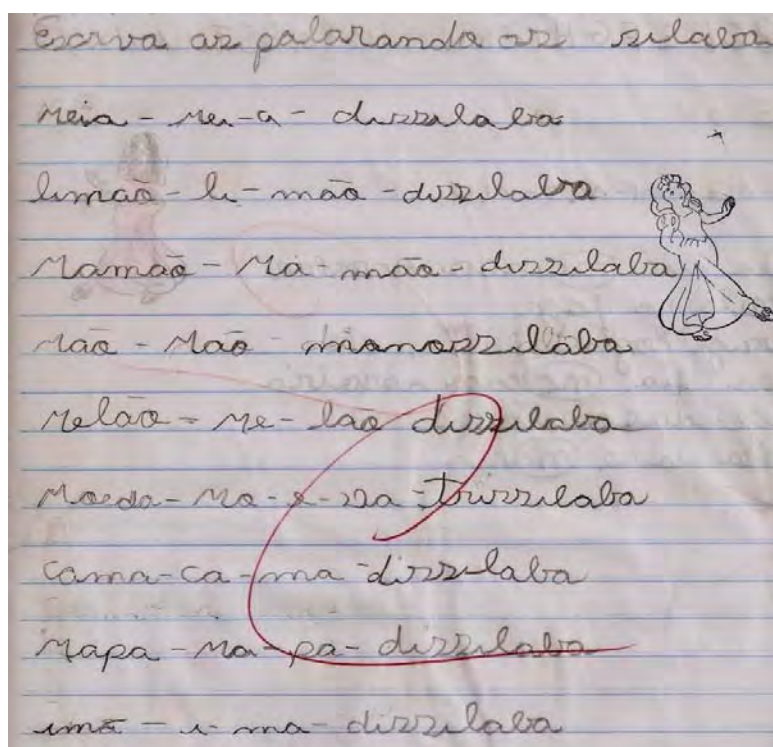 Escriva as palaranda as silaba
Meia - Mei-a - dissilaba
limão - li - mão - dissilaba
Mamão - Ma - mão - dissilaba
Mão - Mão - monossilaba
Melão - Me - lão dissilaba
Moeda - Mo - e - da - trissilaba
cama - ca - ma - dissilaba
Mapa - Ma - pa - dissilaba
imã - i - ma - dissilaba